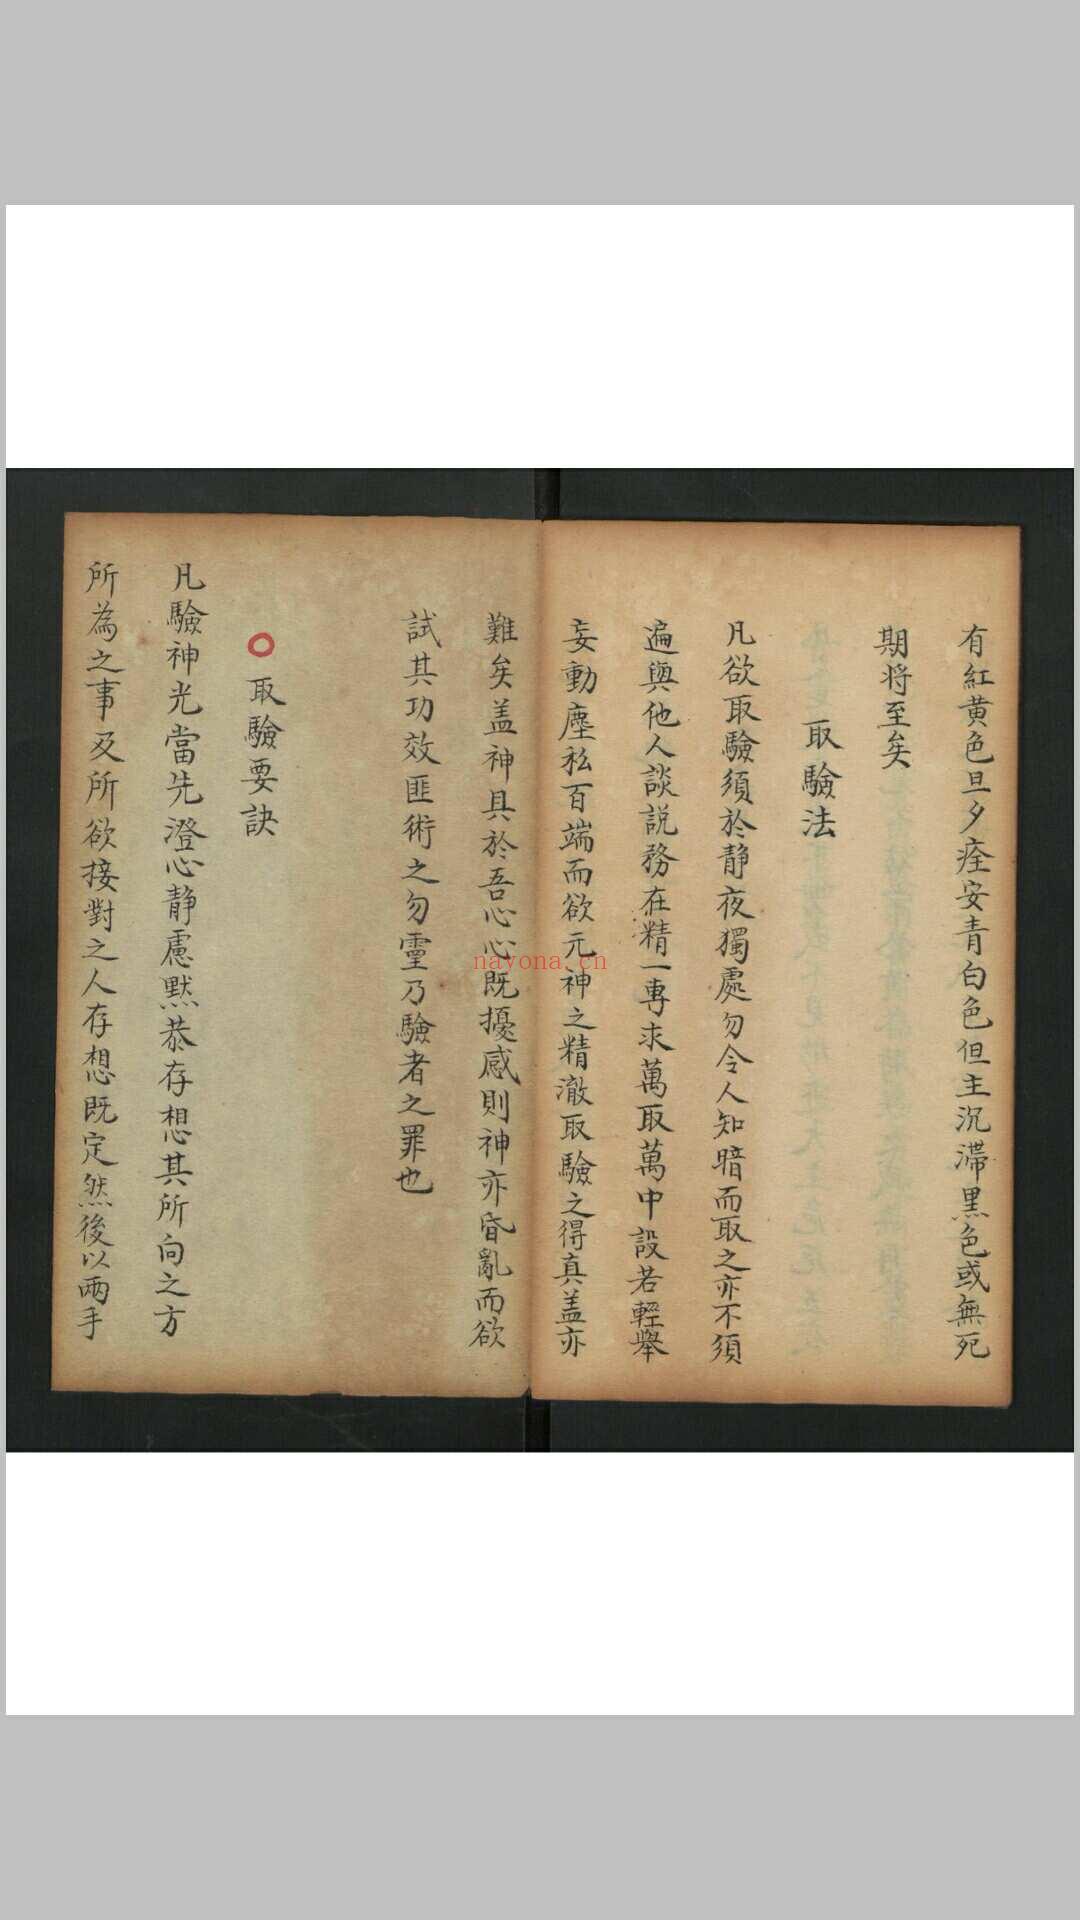 有紅黄色旦夕痊安青白色但主沉滯黒色或無死
期将至矣
取驗法
凡欲取驗須於静夜獨處勿令人知暗而取之亦不須
遍與他人談説務在精一專求萬取萬中設若輕舉
妄動塵私百端而欲元神之精澈取驗之得真盖亦
難矣盖神具於吾心心既擾惑則神亦昏亂而欲
試其功效匪術之勿靈乃驗者之罪也
取驗要訣
凡驗神光當先澄心静慮黙恭存想其所向之方
所為之事及所欲接對之人存想既定然後以兩手
nayona.cn